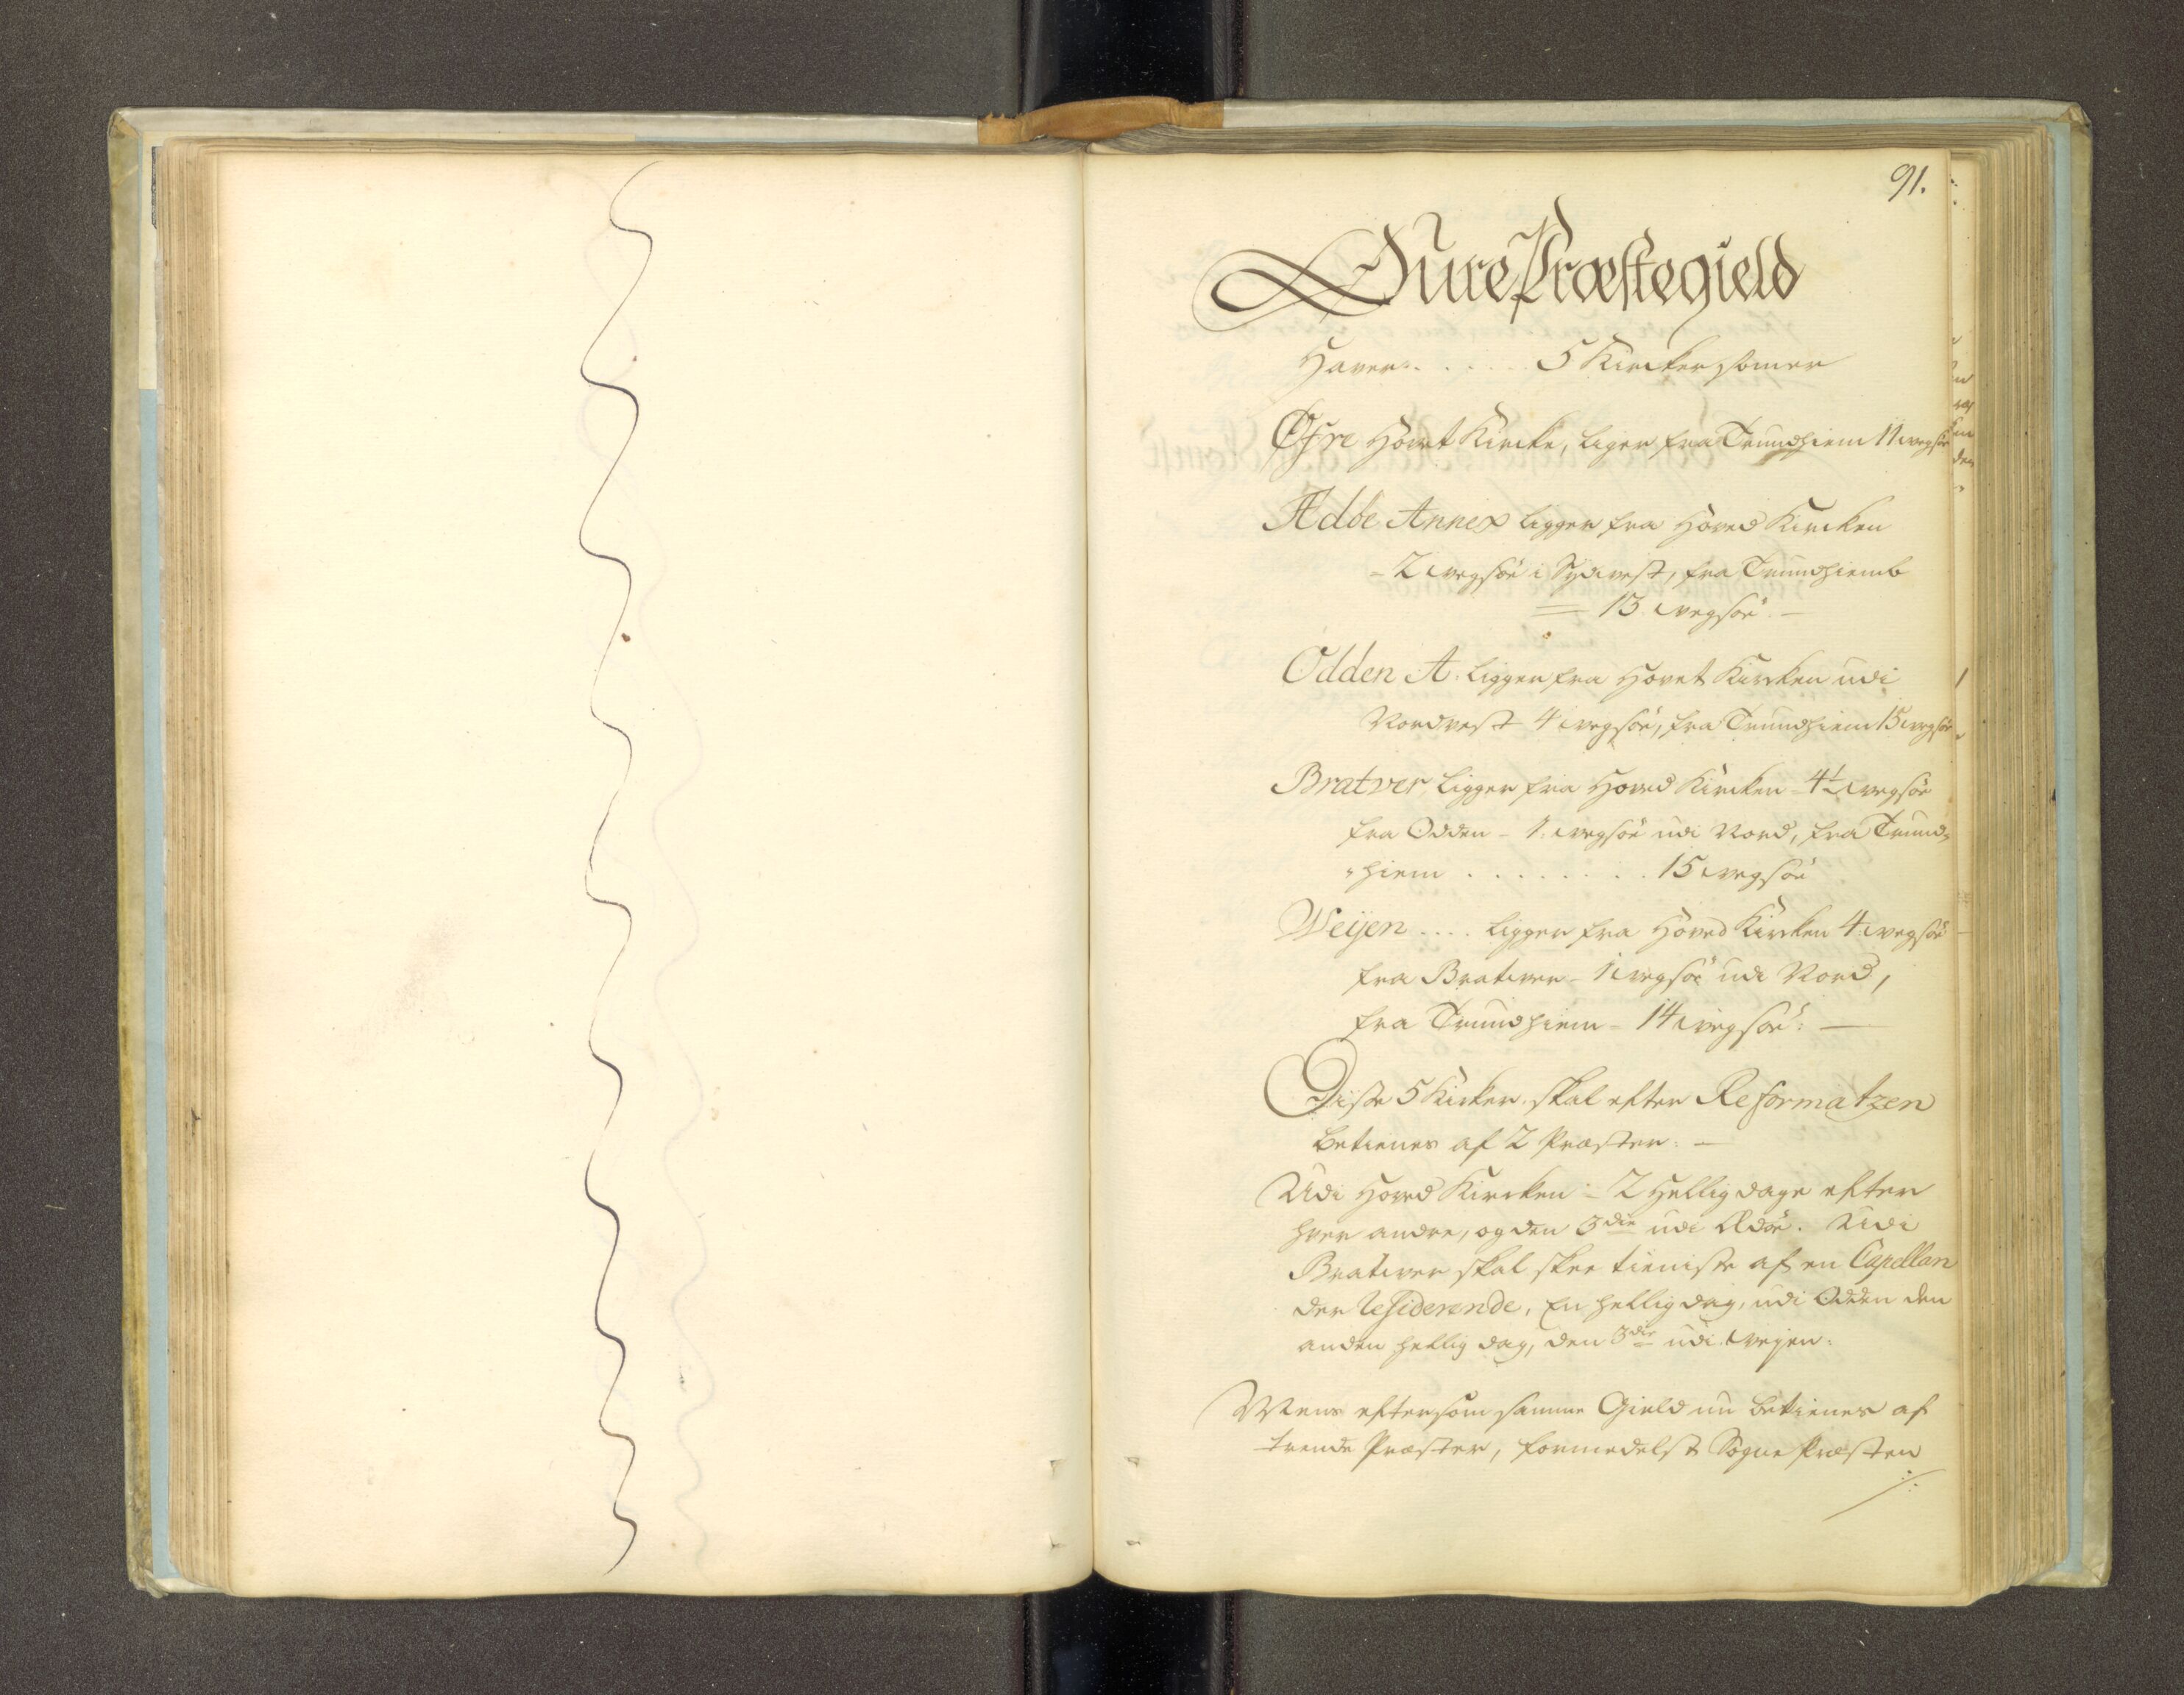 91.
Aure Præstegield
Haver . . . . . 5 Kircker somer
Øfre Hovet Kircke, liger fra Trundhiem 11 wegsöe
Ædöe Annex ligger fra Hoved Kircken
- 2 wegsöe i Sydvest, fra Trundhiemb
= 13 wegsöe. -
Odden A. ligger fra Hovet Kircken udi
Nordvest 4 wegsöe, fra Trundhiem 15 wegsöe
Bratver ligger fra Hoved Kircken 4½ wegsöe
fra Odden - 1. wegsöe udi Nord, fra Trund-
-hiem . . . . . . . . 15 wegsöe
Weÿen . . . . ligger fra Hoved Kircken 4. wegsöe
fra Bratwer - 1 wegsöe udi Nord,
fra Trundhiem - 14 wegsöe: -
Disse 5 Kirker skal efter Reformatzen
betienes af 2 Præster: -
Udi Hoved Kircken - 2 Hellig dage efter
hver andre, og den 3die udi Ædöe. Udi
Bratwer skal skee tieniste af en Capellan
der Residerende, En hellig dag, udi Odden den
anden hellig dag, den 3die udi wejen:
Mens eftersom samme Gield nu betienes af
trende Præster, formedelst Sogne Præsten